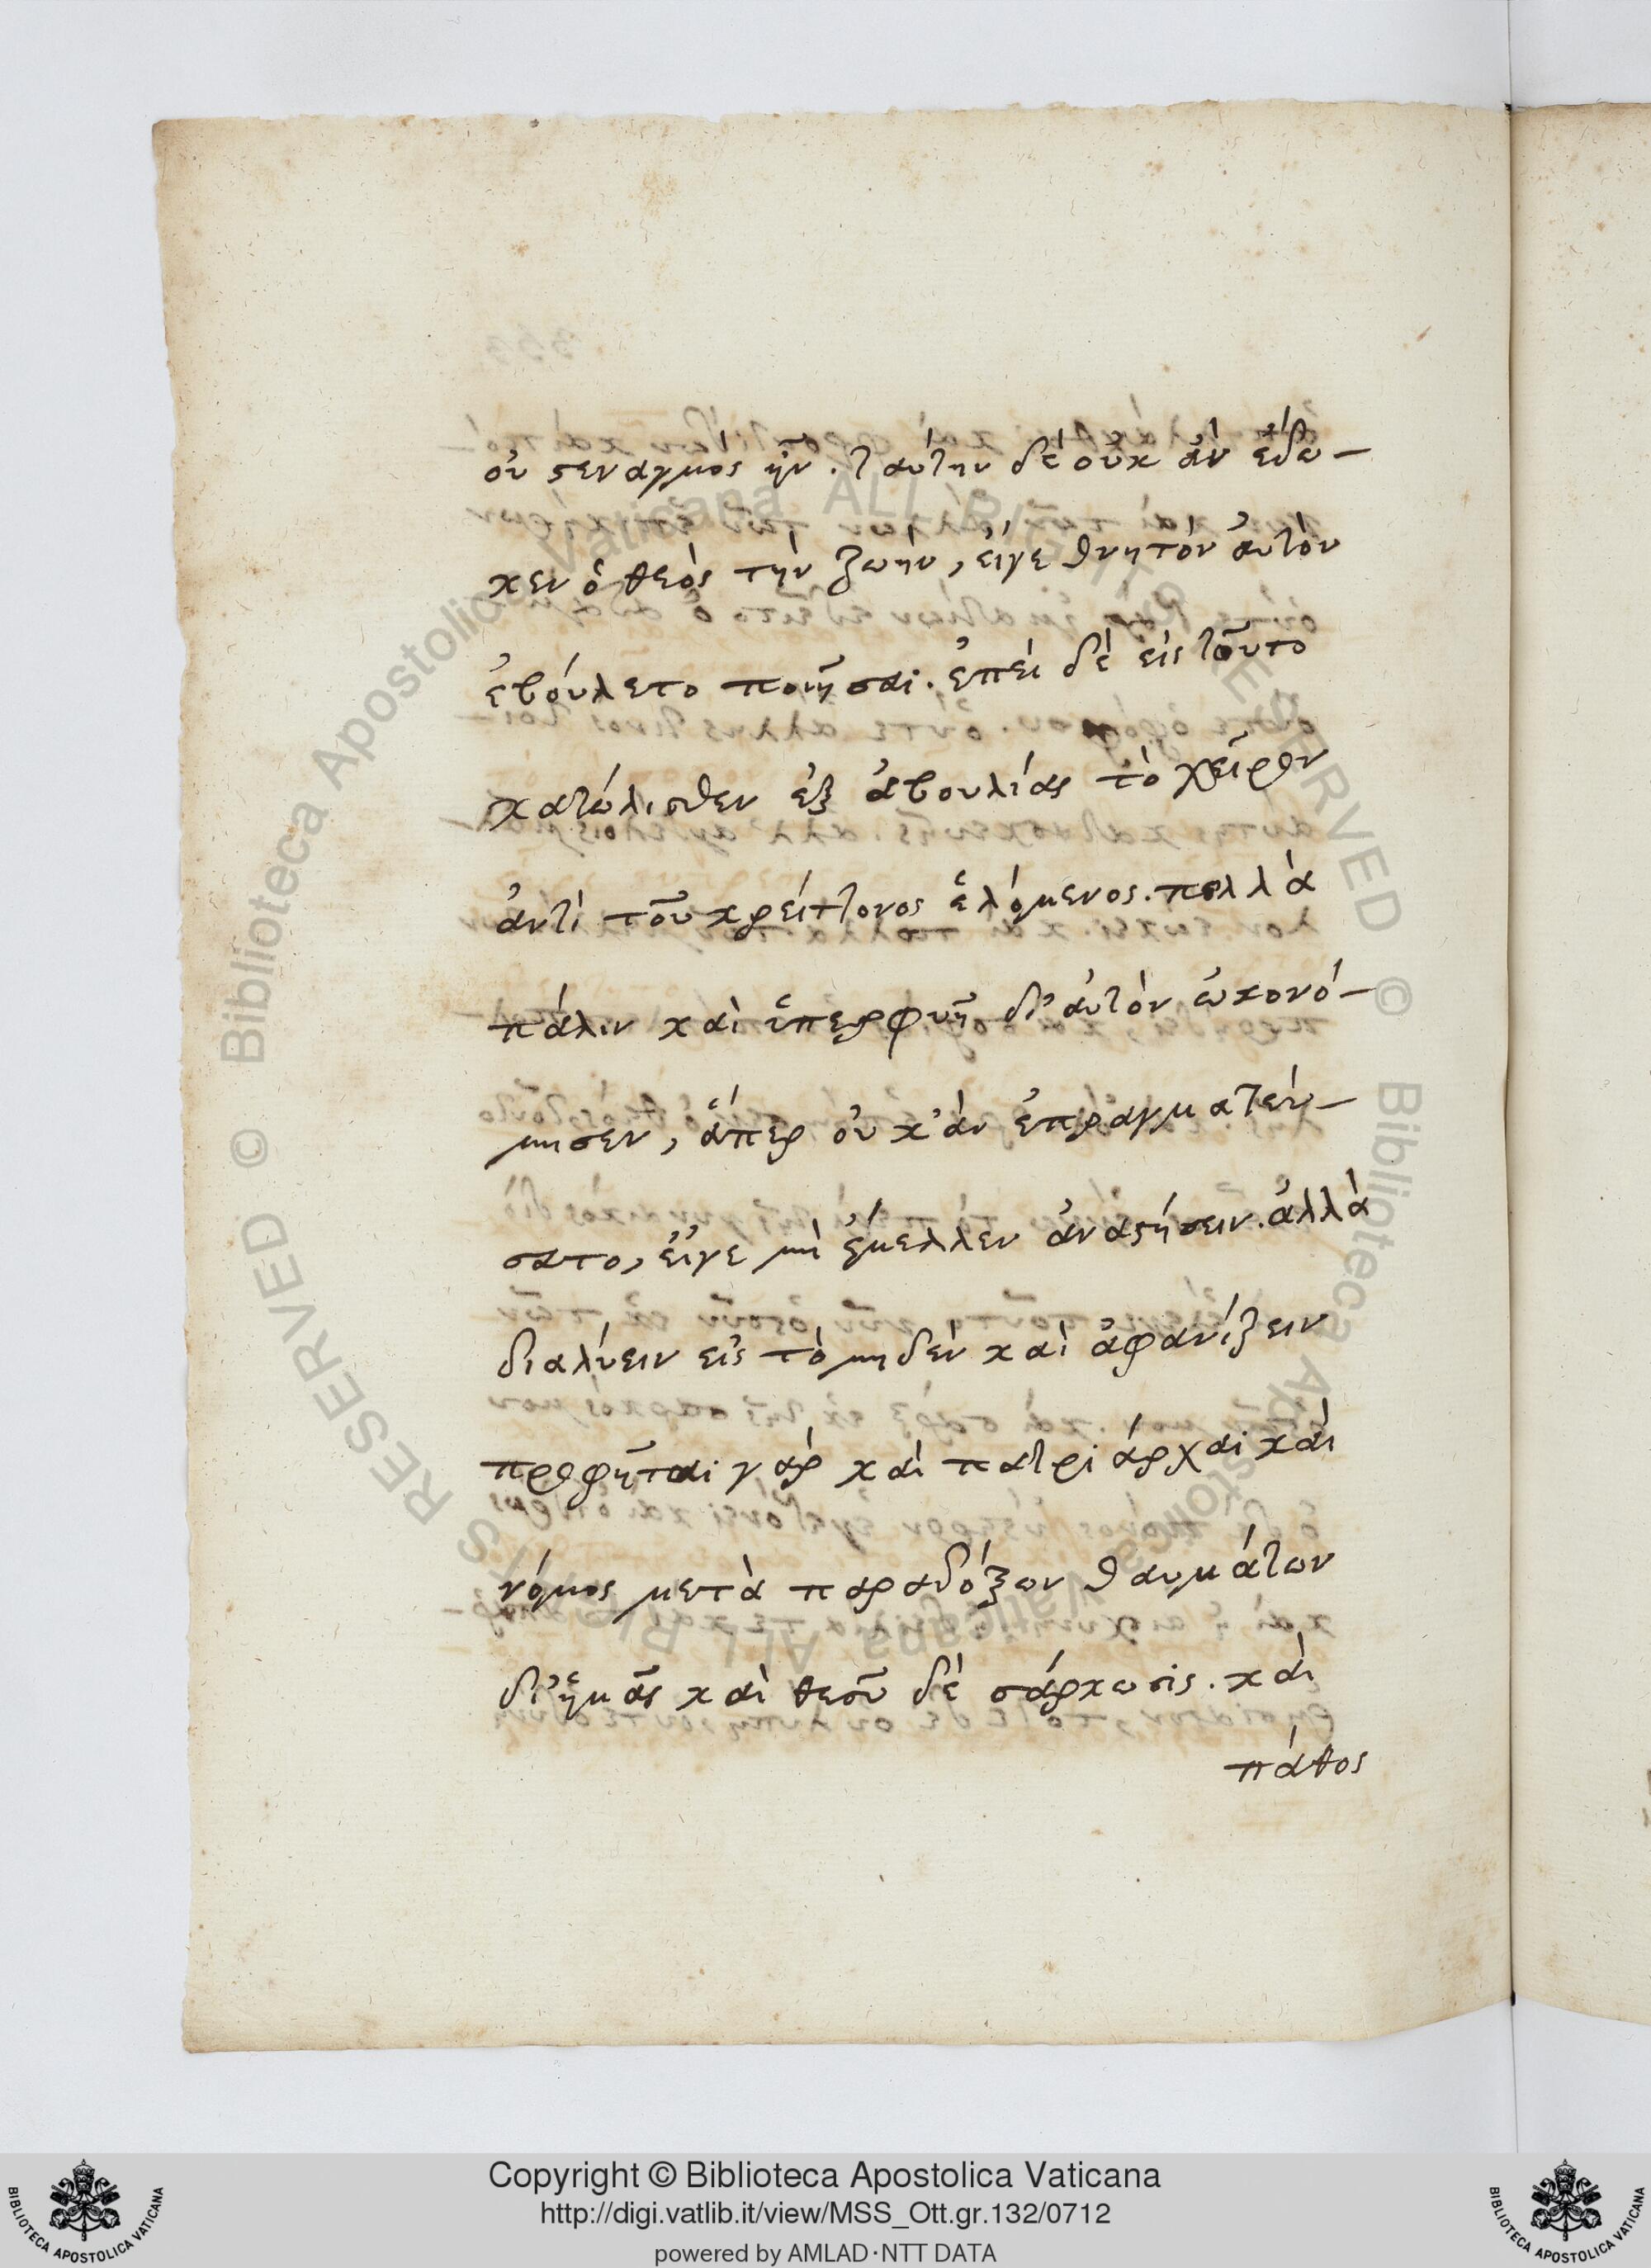 οὐ στεναγμὸς ἦν. ταύτην δὲ οὐκ ἂν ἔδω-
κεν ὁ θεὸς τὴν ζωὴν, εἴγε θνητὸν αὐτὸν
ἐβούλετο ποιῆσαι. ἐπεὶ δὲ εἰς τοῦτο
κατώλισθεν ἐξ ἀβουλίας τὸ χεῖρον
ἀντὶ τοῦ κρείττονος ἑλόμενος. πολλὰ
πάλιν καὶ ὑπερφυῆ δι' αὐτὸν ὠκονό-
μησεν, ἅπερ οὐκ ἂν ἐπραγματεύ-
σατο, εἴγε μὴ ἔμελλεν ἀναστήσειν. ἀλλὰ
διαλύειν εἰς τὸ μηδὲν καὶ ἀφανίζειν
προφῆται γὰρ καὶ πατριάρχαι καὶ
νόμος μετὰ παραδόξων θαυμάτων
δι' ἡμᾶς καὶ θεοῦ δὲ σάρκωσις. καὶ
πάθος
Copyright © Biblioteca Apostolica Vaticana
http://digi.vatlib.it/view/MSS_Ott.gr.132/0712
powered by AMLAD·NTT DATA
BIBLIOTECA APOSTOLICA VATICANA
BIBLIOTECA APOSTOLICA VATICANA